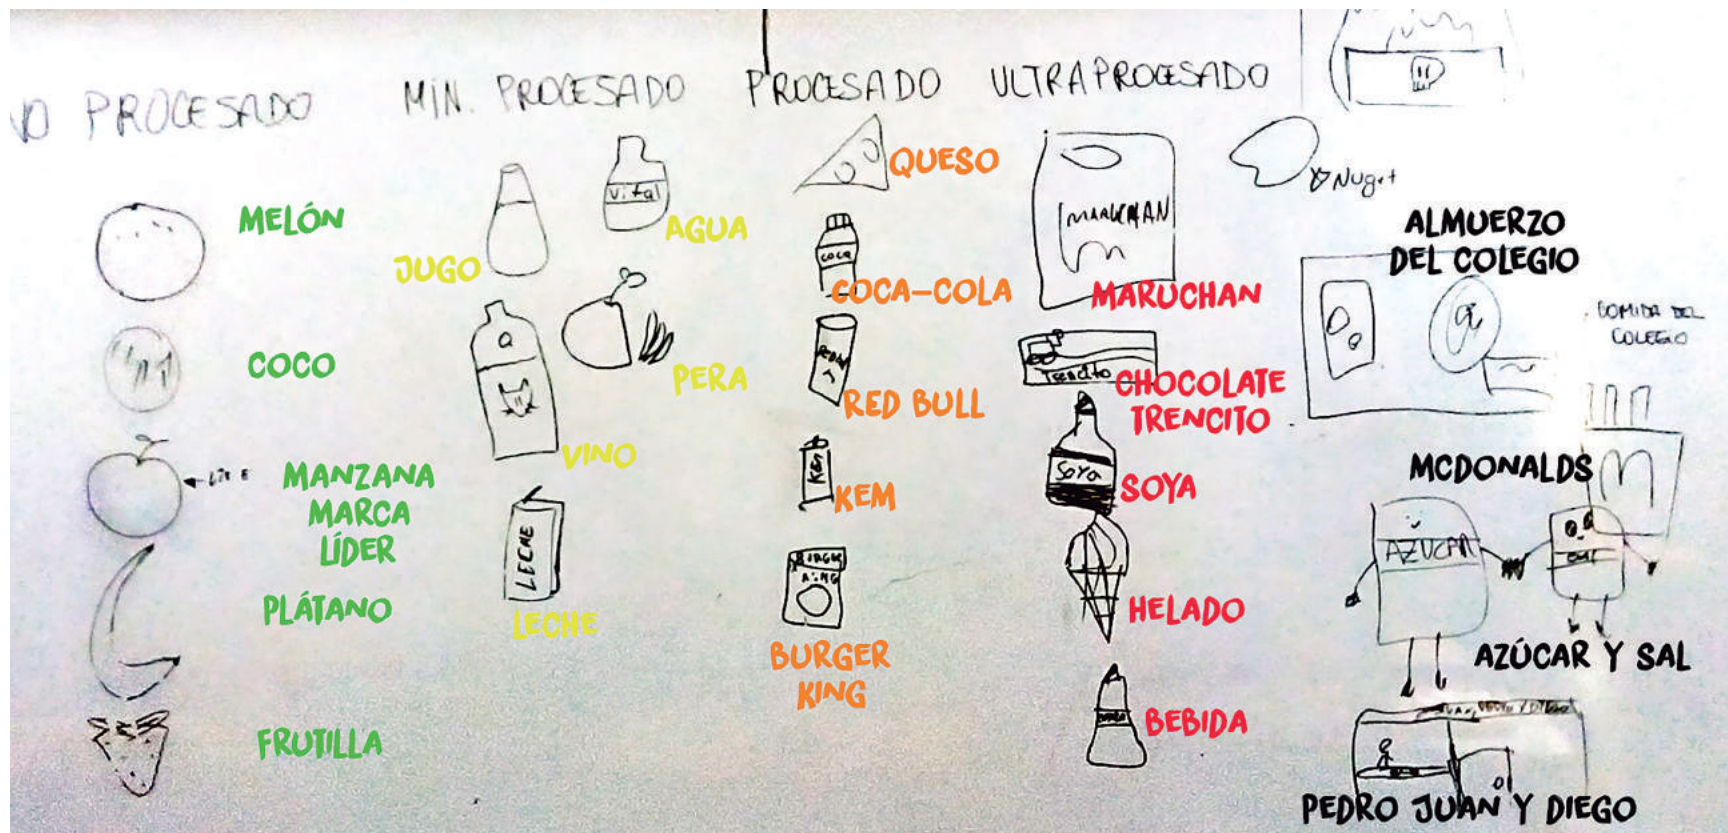 NO PROCESADO
MIN. PROCESADO
PROCESADO
ULTRAPROCESADO
MELÓN
COCO
MANZANA
MARCA
LÍDER
PLÁTANO
FRUTILLA
Vital
AGUA
JUGO
PERA
VINO
LECHE
LECHE
QUESO
COCA
COCA-COLA
RED BULL
KEM
KEM
BURGER
KING
BURGER
KING
MARUCHAN
MARUCHAN
Trencito
CHOCOLATE
TRENCITO
SOYA
SOYA
HELADO
BEBIDA
Nuget
ALMUERZO
DEL COLEGIO
COMIDA DEL
COLEGIO
MCDONALDS
AZUCAR
AZÚCAR Y SAL
PEDRO JUAN Y DIEGO